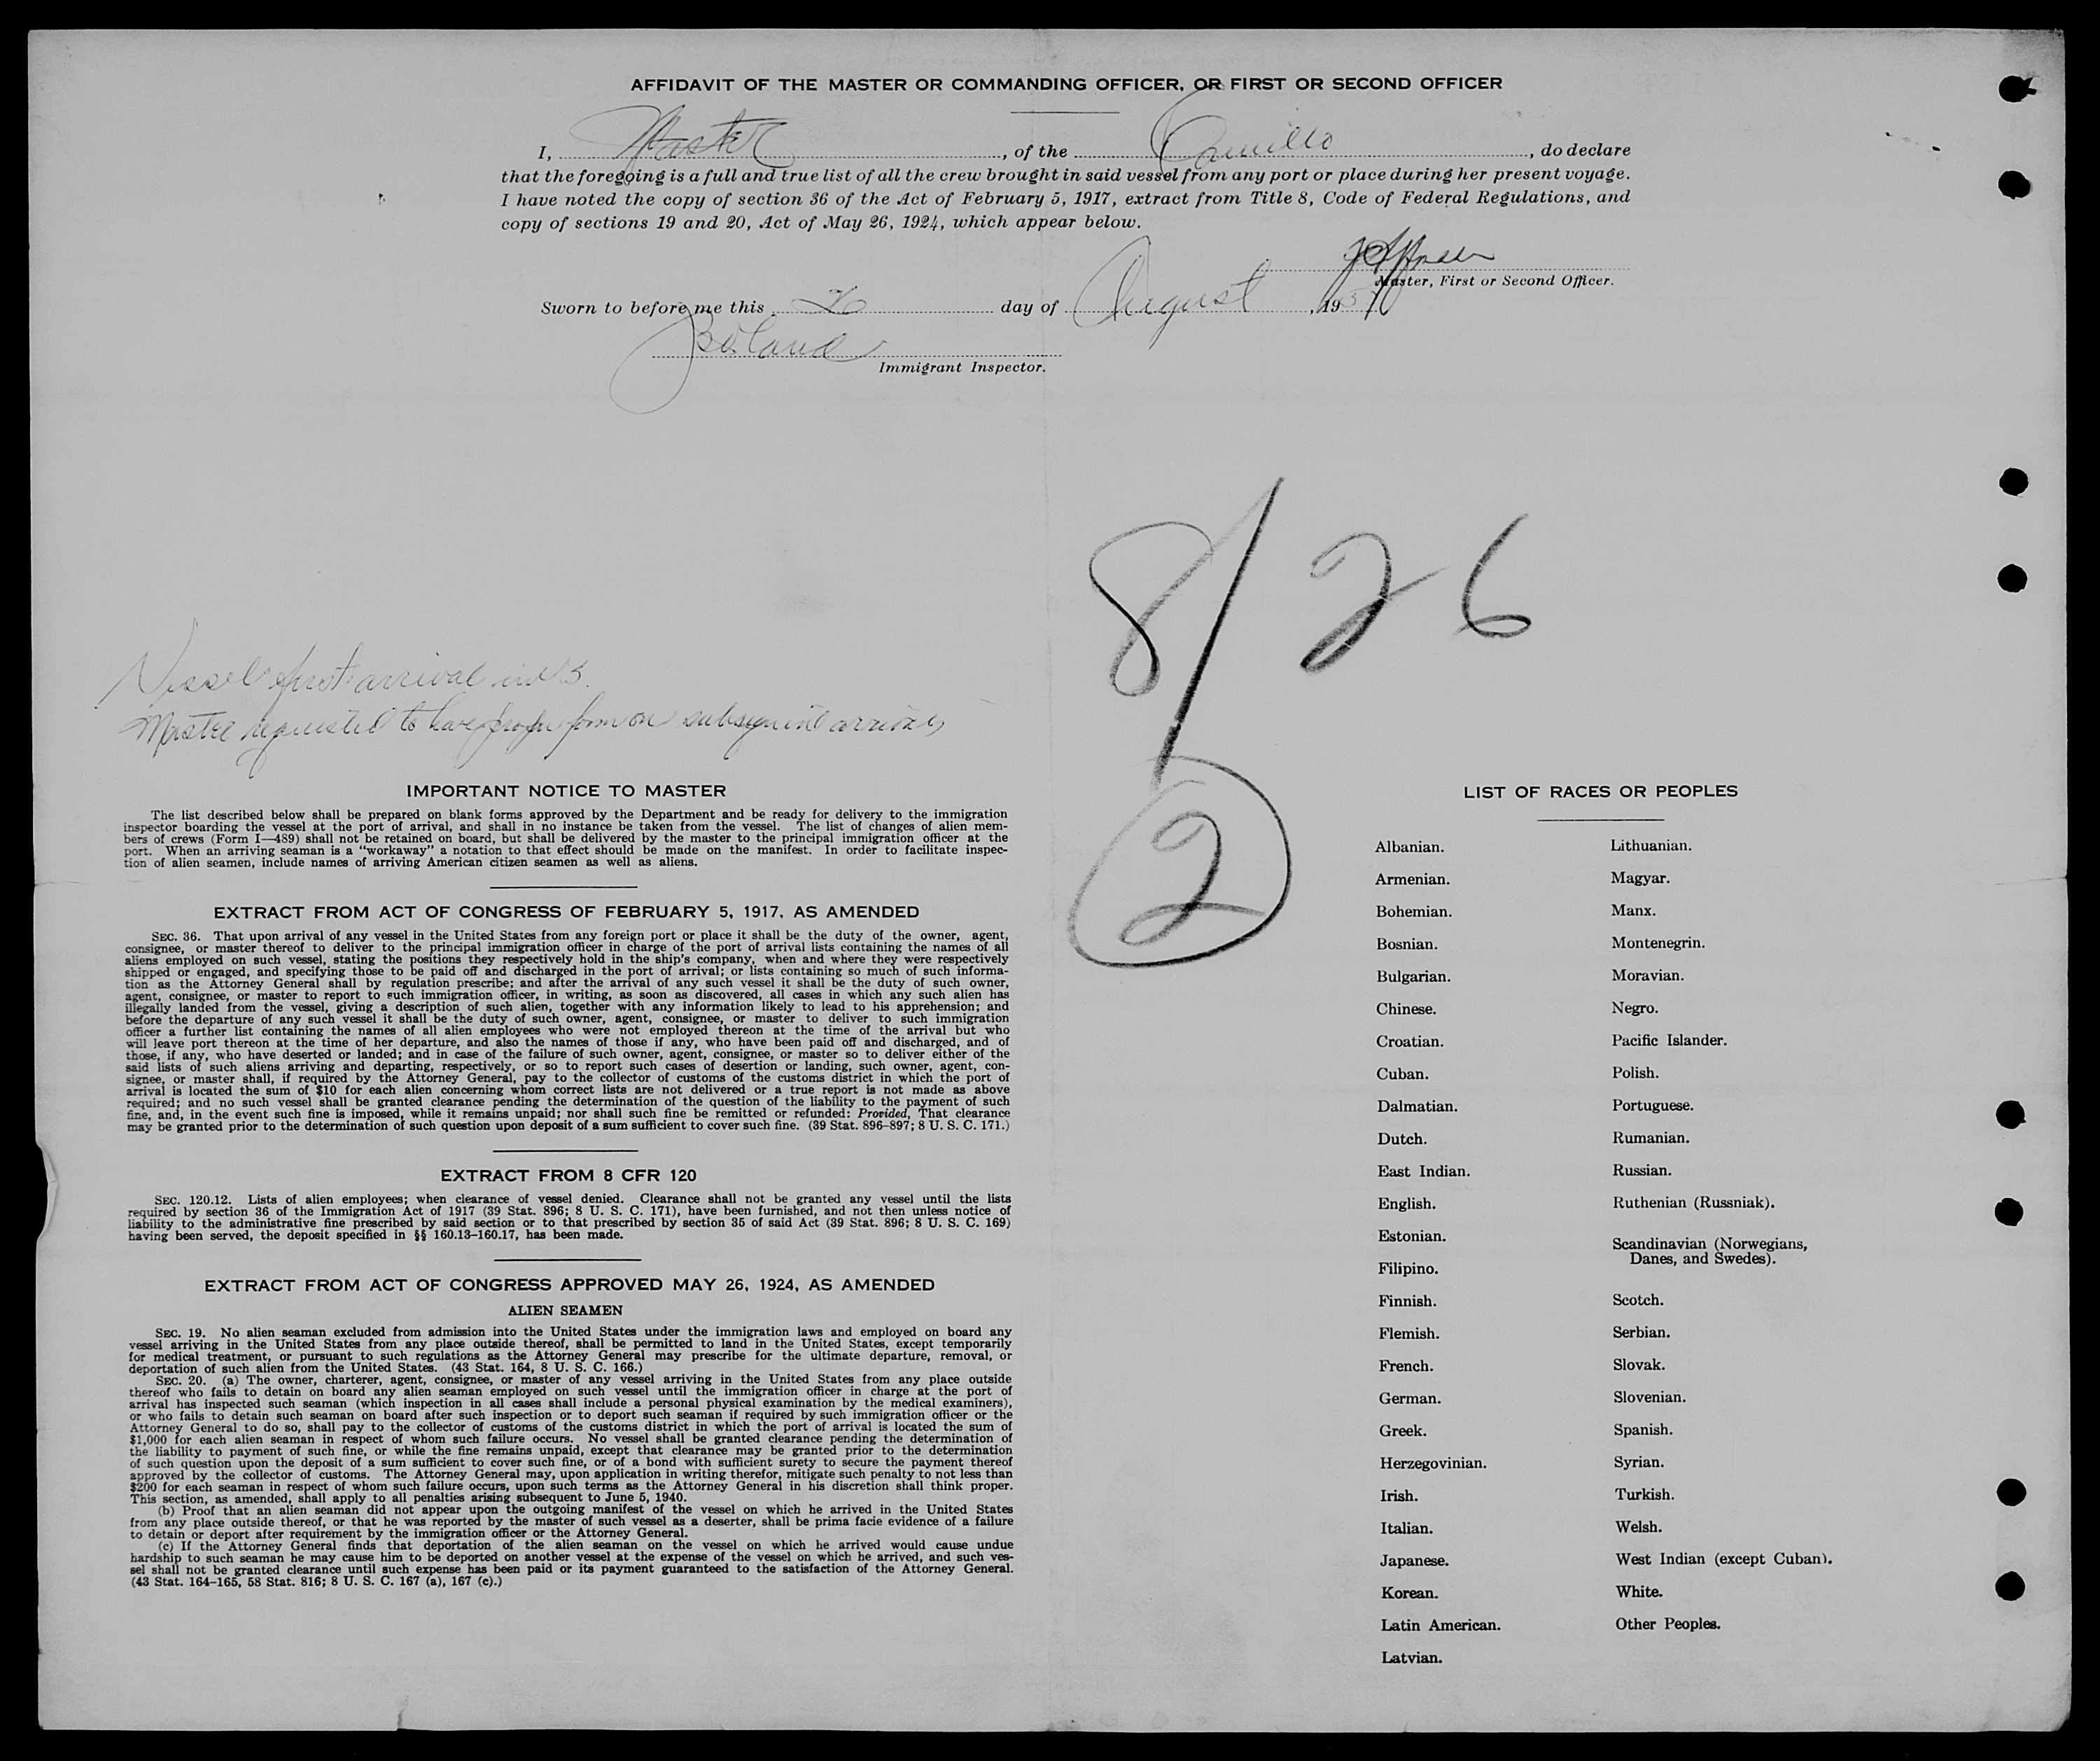 AFFIDAVIT OF THE MASTER OR COMMANDING OFFICER, OR FIRST OR SECOND OFFICER
I, Master, of the Camillo, do declare
that the foregoing is a full and true list of all the crew brought in said vessel from any port or place during her present voyage.
I have noted the copy of section 36 of the Act of February 5, 1917, extract from Title 8, Code of Federal Regulations, and
copy of sections 19 and 20, Act of May 26, 1924, which appear below.
Master, First or Second Officer.
Sworn to before me this 26 day of August, 195
Immigrant Inspector.
8/26
Vessel's first arrival in U.S.
Master requested to have proper form on subsequent arrivals
2
IMPORTANT NOTICE TO MASTER
The list described below shall be prepared on blank forms approved by the Department and be ready for delivery to the immigration
inspector boarding the vessel at the port of arrival, and shall in no instance be taken from the vessel. The list of changes of alien mem-
bers of crews (Form I—489) shall not be retained on board, but shall be delivered by the master to the principal immigration officer at the
port. When an arriving seaman is a "workaway" a notation to that effect should be made on the manifest. In order to facilitate inspec-
tion of alien seamen, include names of arriving American citizen seamen as well as aliens.
EXTRACT FROM ACT OF CONGRESS OF FEBRUARY 5, 1917, AS AMENDED
SEC. 36. That upon arrival of any vessel in the United States from any foreign port or place it shall be the duty of the owner, agent,
consignee, or master thereof to deliver to the principal immigration officer in charge of the port of arrival lists containing the names of all
aliens employed on such vessel, stating the positions they respectively hold in the ship's company, when and where they were respectively
shipped or engaged, and specifying those to be paid off and discharged in the port of arrival; or lists containing so much of such informa-
tion as the Attorney General shall by regulation prescribe; and after the arrival of any such vessel it shall be the duty of such owner,
agent, consignee, or master to report to such immigration officer, in writing, as soon as discovered, all cases in which any such alien has
illegally landed from the vessel, giving a description of such alien, together with any information likely to lead to his apprehension; and
before the departure of any such vessel it shall be the duty of such owner, agent, consignee, or master to deliver to such immigration
officer a further list containing the names of all alien employees who were not employed thereon at the time of the arrival but who
will leave port thereon at the time of her departure, and also the names of those if any, who have been paid off and discharged, and of
those, if any, who have deserted or landed; and in case of the failure of such owner, agent, consignee, or master so to deliver either of the
said lists of such aliens arriving and departing, respectively, or so to report such cases of desertion or landing, such owner, agent, con-
signee, or master shall, if required by the Attorney General, pay to the collector of customs of the customs district in which the port of
arrival is located the sum of $10 for each alien concerning whom correct lists are not delivered or a true report is not made as above
required; and no such vessel shall be granted clearance pending the determination of the question of the liability to the payment of such
fine, and, in the event such fine is imposed, while it remains unpaid; nor shall such fine be remitted or refunded: Provided, That clearance
may be granted prior to the determination of such question upon deposit of a sum sufficient to cover such fine. (39 Stat. 896-897; 8 U. S. C. 171.)
EXTRACT FROM 8 CFR 120
SEC. 120.12. Lists of alien employees; when clearance of vessel denied. Clearance shall not be granted any vessel until the lists
required by section 36 of the Immigration Act of 1917 (39 Stat. 896; 8 U. S. C. 171), have been furnished, and not then unless notice of
liability to the administrative fine prescribed by said section or to that prescribed by section 35 of said Act (39 Stat. 896; 8 U. S. C. 169)
having been served, the deposit specified in §§ 160.13-160.17, has been made.
EXTRACT FROM ACT OF CONGRESS APPROVED MAY 26, 1924, AS AMENDED
ALIEN SEAMEN
SEC. 19. No alien seaman excluded from admission into the United States under the immigration laws and employed on board any
vessel arriving in the United States from any place outside thereof, shall be permitted to land in the United States, except temporarily
for medical treatment, or pursuant to such regulations as the Attorney General may prescribe for the ultimate departure, removal, or
deportation of such alien from the United States. (43 Stat. 164, 8 U. S. C. 166.)
SEC. 20. (a) The owner, charterer, agent, consignee, or master of any vessel arriving in the United States from any place outside
thereof who fails to detain on board any alien seaman employed on such vessel until the immigration officer in charge at the port of
arrival has inspected such seaman (which inspection in all cases shall include a personal physical examination by the medical examiners),
or who fails to detain such seaman on board after such inspection or to deport such seaman if required by such immigration officer or the
Attorney General to do so, shall pay to the collector of customs of the customs district in which the port of arrival is located the sum of
$1,000 for each alien seaman in respect of whom such failure occurs. No vessel shall be granted clearance pending the determination of
the liability to payment of such fine, or while the fine remains unpaid, except that clearance may be granted prior to the determination
of such question upon the deposit of a sum sufficient to cover such fine, or of a bond with sufficient surety to secure the payment thereof
approved by the collector of customs. The Attorney General may, upon application in writing therefor, mitigate such penalty to not less than
$200 for each seaman in respect of whom such failure occurs, upon such terms as the Attorney General in his discretion shall think proper.
This section, as amended, shall apply to all penalties arising subsequent to June 5, 1940.
(b) Proof that an alien seaman did not appear upon the outgoing manifest of the vessel on which he arrived in the United States
from any place outside thereof, or that he was reported by the master of such vessel as a deserter, shall be prima facie evidence of a failure
to detain or deport after requirement by the immigration officer or the Attorney General.
(c) If the Attorney General finds that deportation of the alien seaman on the vessel on which he arrived would cause undue
hardship to such seaman he may cause him to be deported on another vessel at the expense of the vessel on which he arrived, and such ves-
sel shall not be granted clearance until such expense has been paid or its payment guaranteed to the satisfaction of the Attorney General.
(43 Stat. 164-165, 58 Stat. 816; 8 U. S. C. 167 (a), 167 (c).)
LIST OF RACES OR PEOPLES
Albanian.
Armenian.
Bohemian.
Bosnian.
Bulgarian.
Chinese.
Croatian.
Cuban.
Dalmatian.
Dutch.
East Indian.
English.
Estonian.
Filipino.
Finnish.
Flemish.
French.
German.
Greek.
Herzegovinian.
Irish.
Italian.
Japanese.
Korean.
Latin American.
Latvian.
Lithuanian.
Magyar.
Manx.
Montenegrin.
Moravian.
Negro.
Pacific Islander.
Polish.
Portuguese.
Rumanian.
Russian.
Ruthenian (Russniak).
Scandinavian (Norwegians,
Danes, and Swedes).
Scotch.
Serbian.
Slovak.
Slovenian.
Spanish.
Syrian.
Turkish.
Welsh.
West Indian (except Cuban).
White.
Other Peoples.